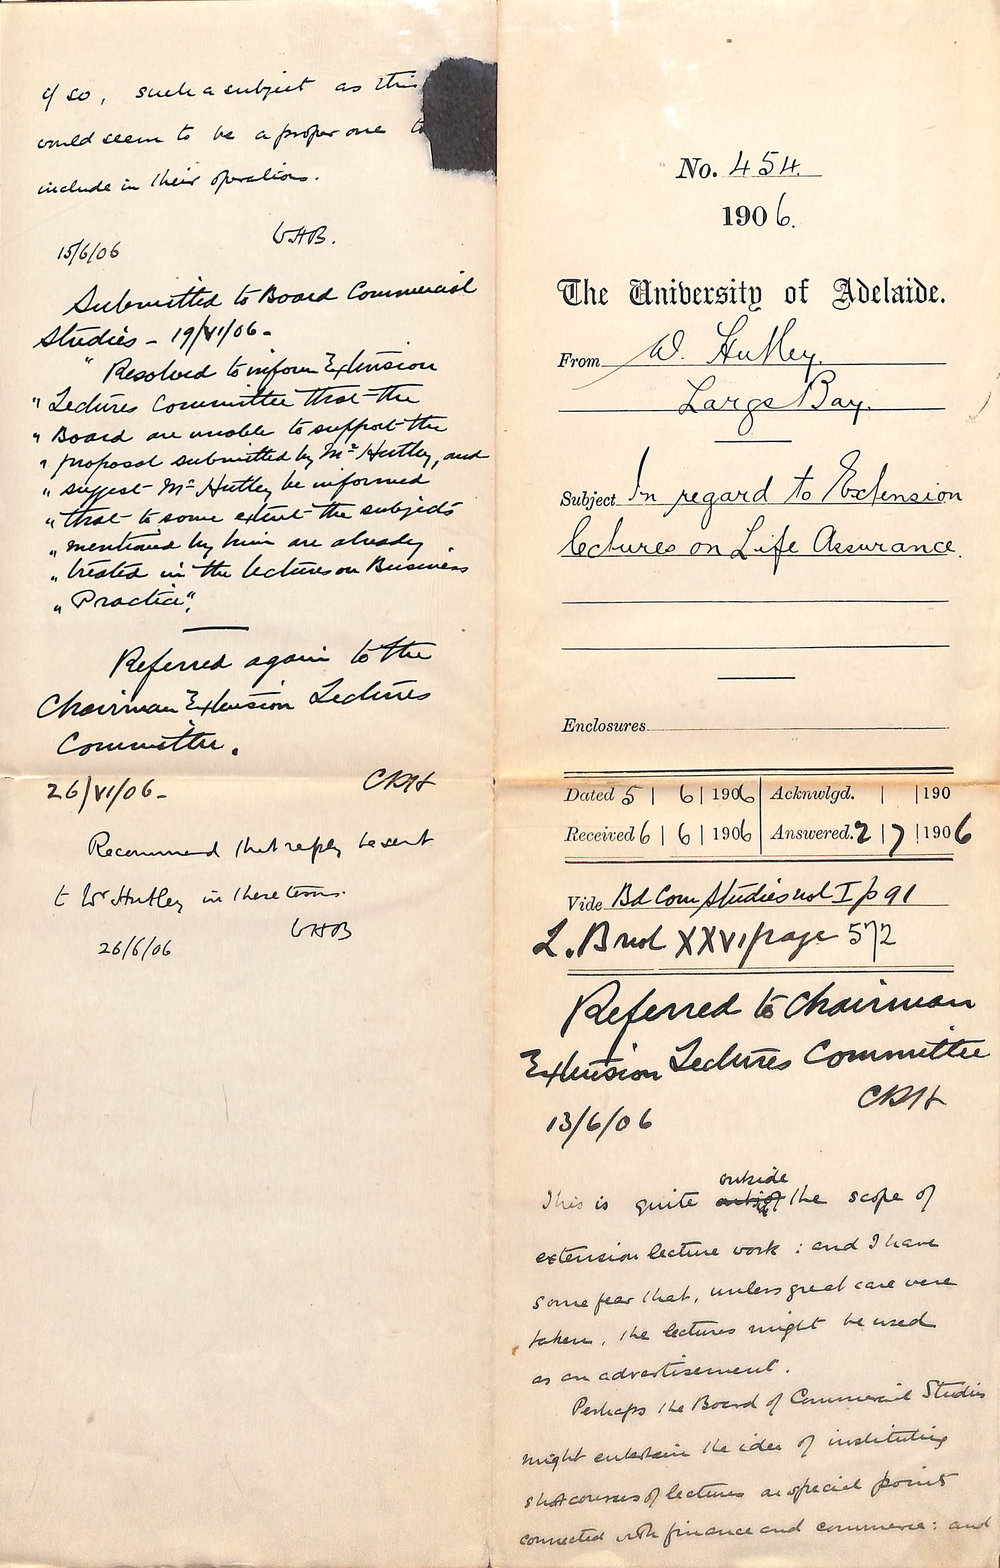 No. 454.
1906.
The University of Adelaide.
From W. Hutley.
Largs Bay.
Subject In regard to Extension
lectures on Life Assurance.
Enclosures
Dated 5 | 6 | 1906 | Acknwlgd. | | 190
Received 6 | 6 | 1906 | Answered. 2 | 7 | 1906
Vide Bd Com Studies vol I p 91
L. B vol XXVI page 572
Referred to Chairman
Extension Lectures Committee
CRH
13/6/06
outside
This is quite the scope of
extension lecture work : and I have
some fear that, unless great care were
taken, the lectures might be used
as an advertisement.
Perhaps the Board of Commercial Studies
might entertain the idea of instituting
short courses of lectures on special points
connected with finance and commerce: and
if so, such a subject as this
would seem to be a proper one to
include in their operations.
WHB.
15/6/06
Submitted to Board Commercial
Studies - 19/VI/06 -
"Resolved to inform Extension
" Lectures Committee that the
" Board are unable to support the
" proposal submitted by Mr Hutley, and
" suggest Mr Hutley be informed
" that to some extent the subjects
" mentioned by him are already
" treated in the lectures on Business
" Practice".
Referred again to the
Chairman Extension Lectures
Committee.
26/VI/06 -
CRH
Recommend that reply be sent
to Mr Hutley in these terms.
WHB
26/6/06